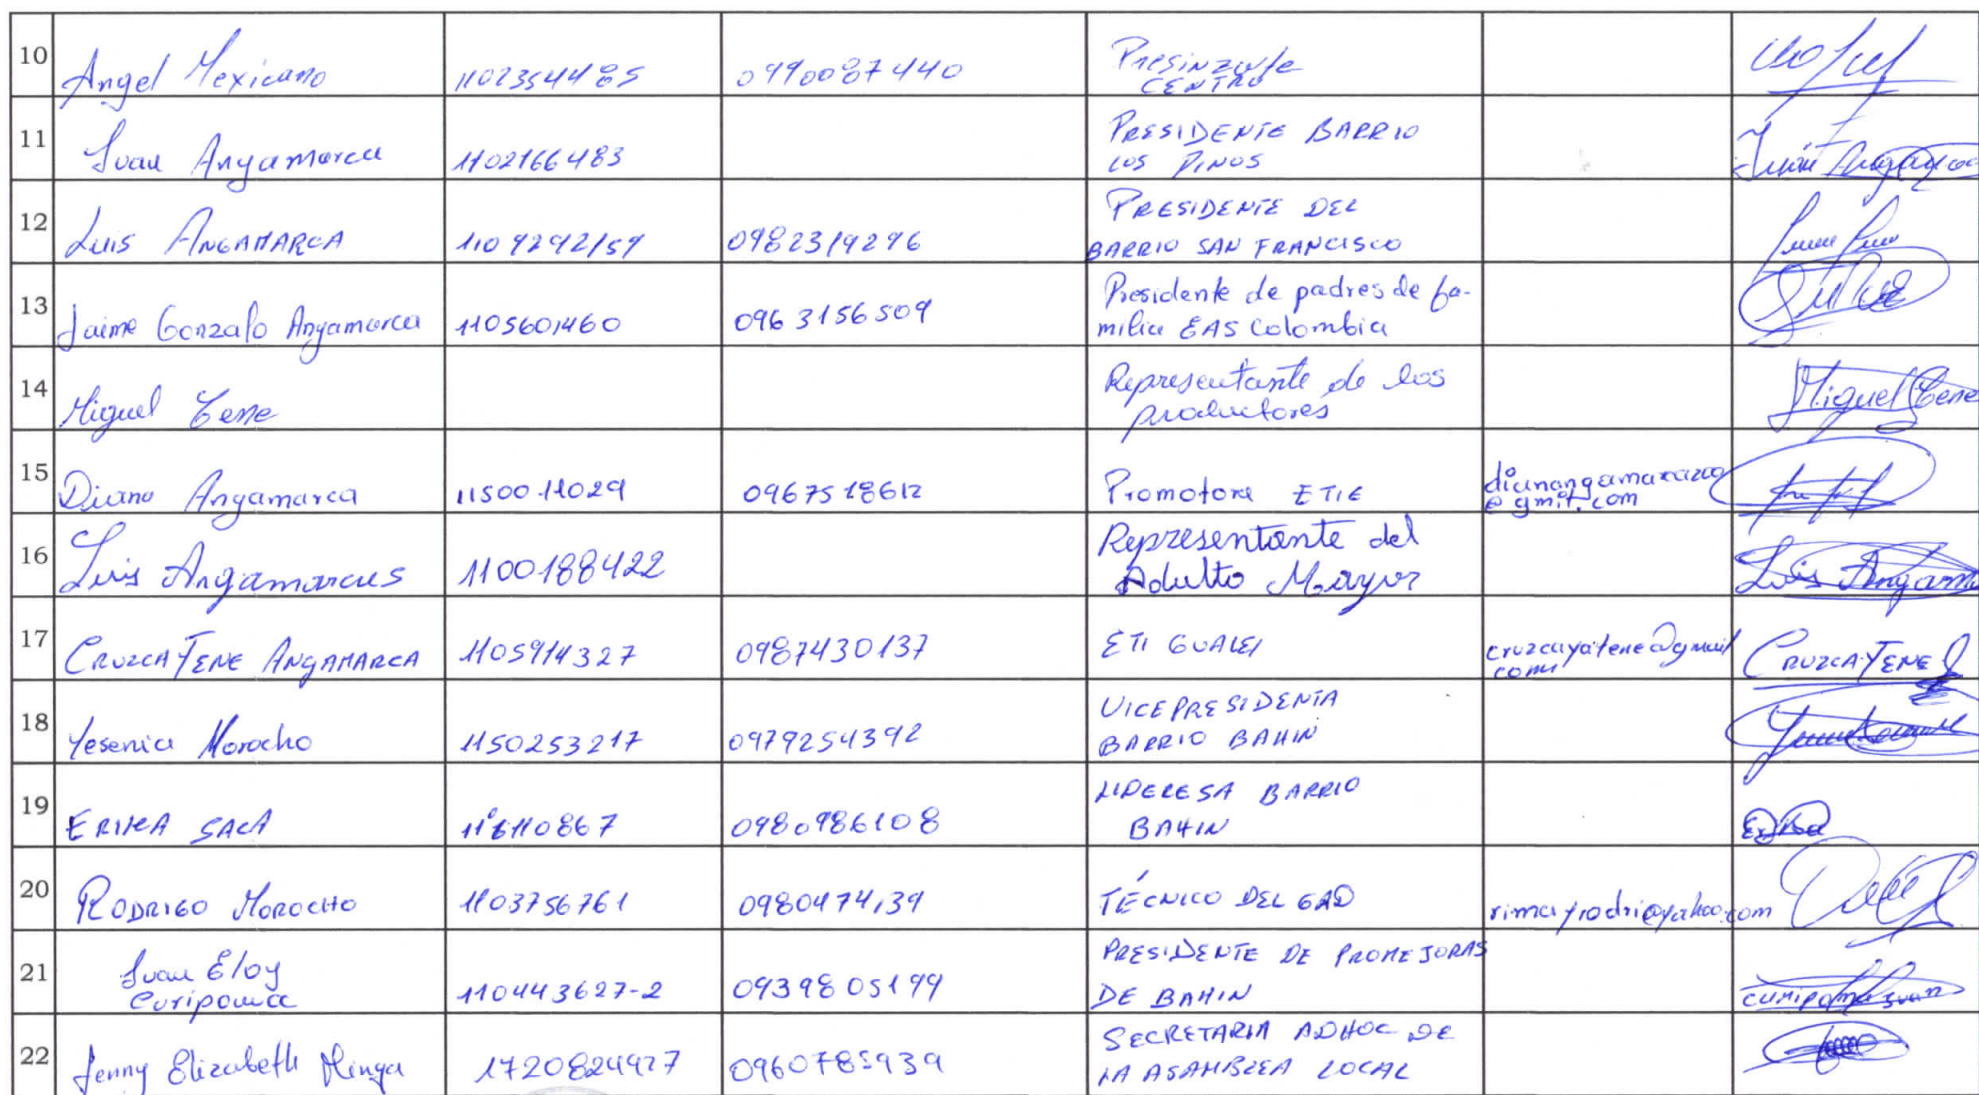 10 Angel Mexicano 1102354485 0990087440 CENTRO
11 Juan Angamarca 1102166483 PRESIDENTE BARRIO
LOS PINOS Juan
12 LUIS ANGAMARCA 0982319296 PRESIDENTE DEL
BARRIO SAN FRANCISCO
13 Jaime Gonzalo Angamarca 1105601460 0963156509 Presidente de padres de fa-
milia EAS Colombia
14 Miguel Tene Representante de los
productores Miguel Tene
15 Diana Angamarca 1150011029 0967518612 Promotora ETIE
@gmit.com
16 Luis Angamarcus 1100188422 Representante del
Adulto Mayor Luis Angama
17 CRUZCA TENE ANGAMARCA 1105914327 0987430137 ETI GUALEI cruzcayatene@gmail
com CRUZCA TENE
18 Yesenia Morocho 1150253217 0979254392 VICEPRESIDENTA
BARRIO BAHIN
19 ERIKA SACA 0980986108 LIDERESA BARRIO
BAHIN Erika
20 RODRIGO MOROCHO 1103756761 0980474139 TÉCNICO DEL GAD rimayrodri@yahoo.com
21 Juan Eloy
Curipoma 110443627-2 0939805199 PRESIDENTE DE PROMEJORAS
DE BAHIN curipoma Juan
22 Jenny Elizabeth Minga 1720824927 0960785939 SECRETARIA ADHOC DE
LA ASAMBLEA LOCAL